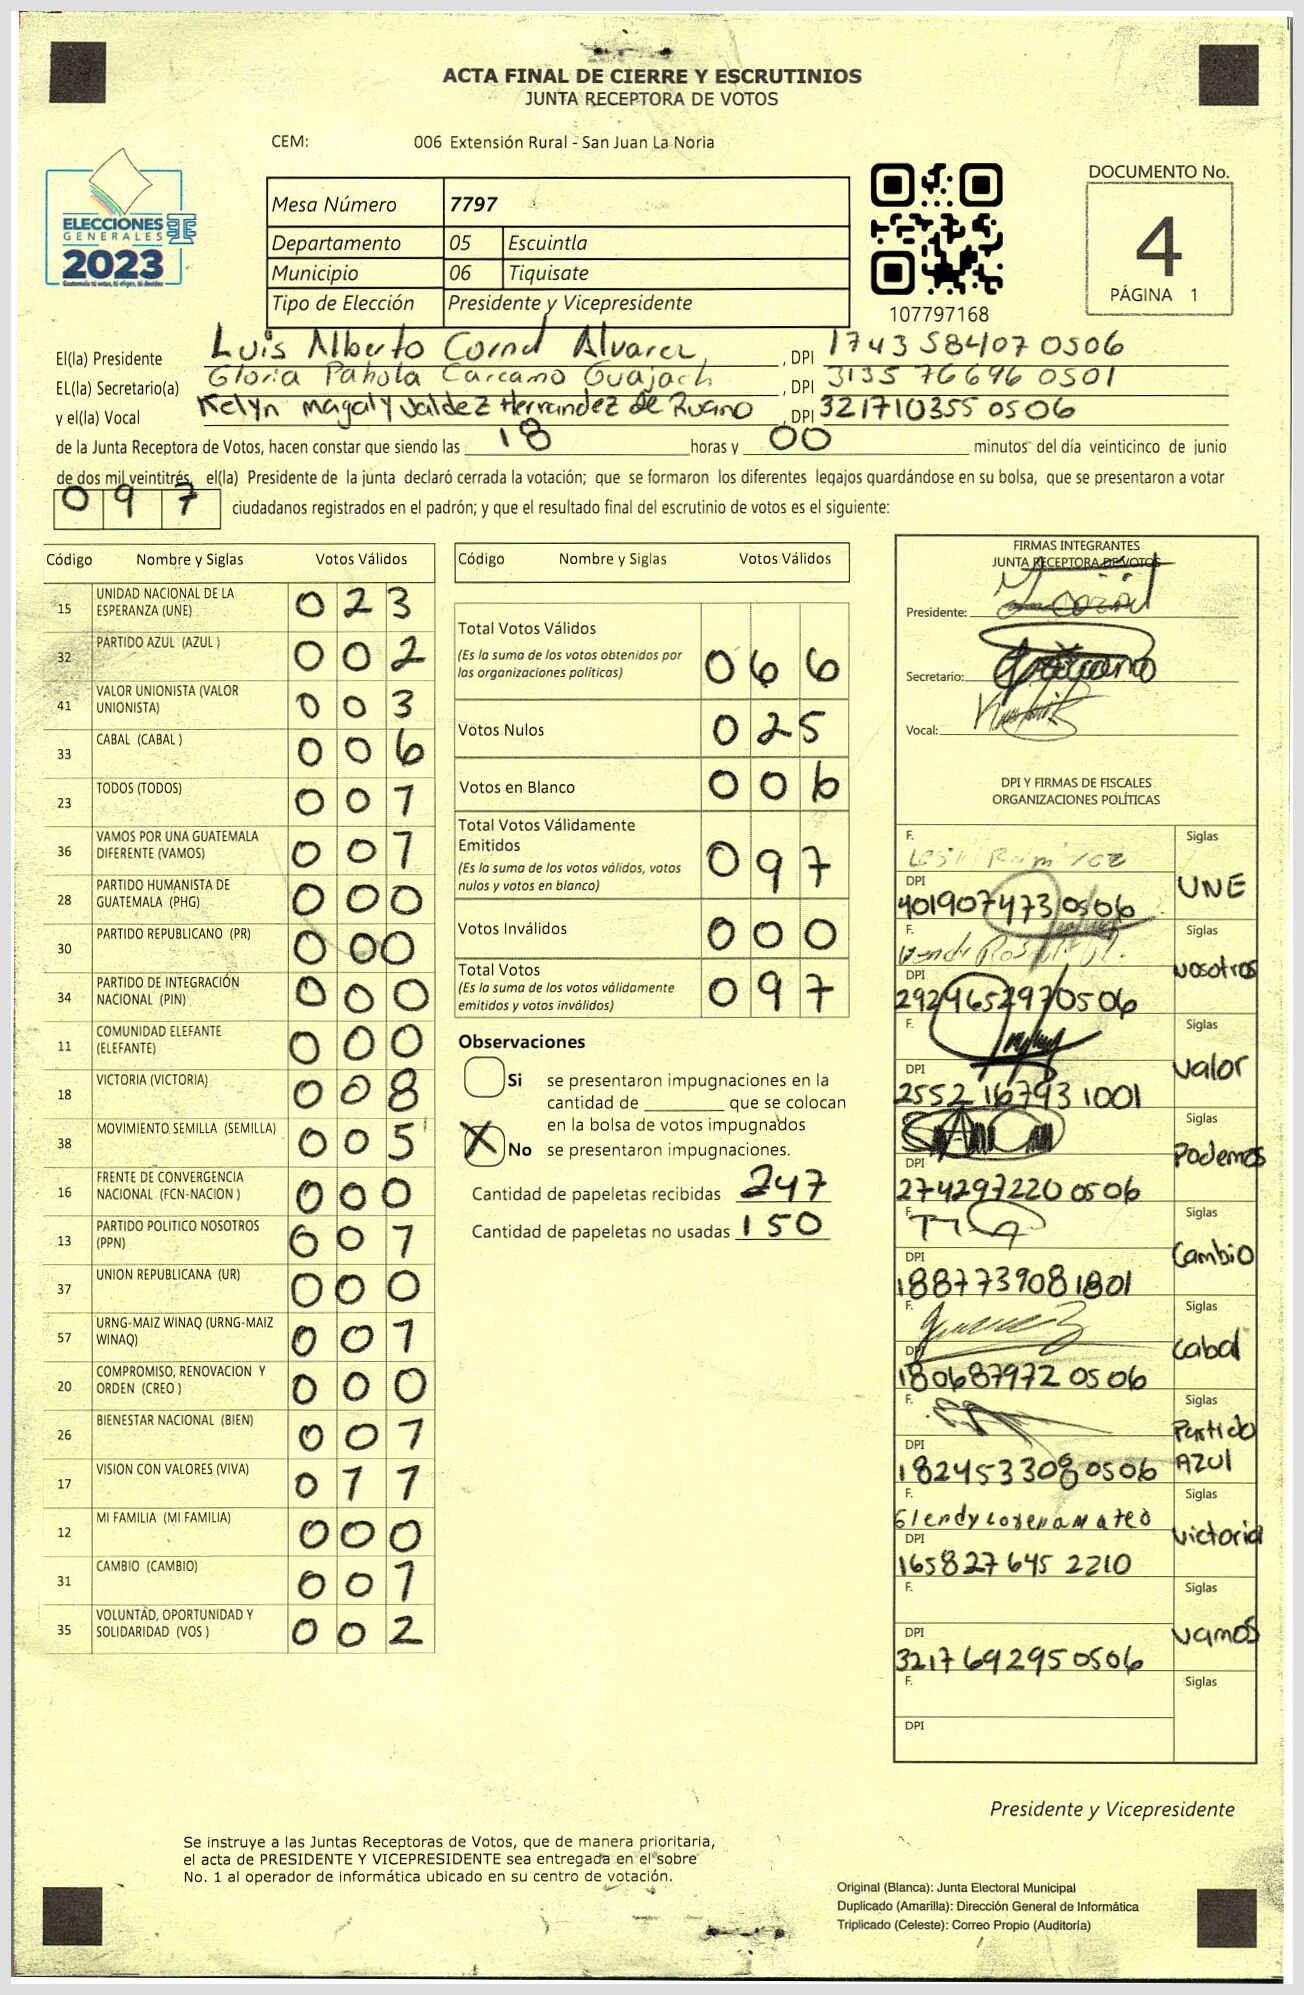 ACTA FINAL DE CIERRE Y ESCRUTINIOS
JUNTA RECEPTORA DE VOTOS
CEM: 006 Extensión Rural - San Juan La Noria
ELECCIONES
GENERALES
2023
Guatemala tú votas, tú eliges, tú decides
Mesa Número 7797
Departamento 05 Escuintla
Municipio 06 Tiquisate
Tipo de Elección Presidente y Vicepresidente
107797168
DOCUMENTO No.
4
PÁGINA 1
El(la) Presidente Luis Alberto Alvarez, DPI 1743 58407 0506
EL(la) Secretario(a) Gloria Pahola Carcamo Guajach, DPI 3135 76696 0501
y el(la) Vocal Kelyn Magaly Valdez Hernandez de Ruano, DPI 321710355 0506
de la Junta Receptora de Votos, hacen constar que siendo las 18 horas y 00 minutos del día veinticinco de junio
de dos mil veintitrés, el(la) Presidente de la junta declaró cerrada la votación; que se formaron los diferentes legajos guardándose en su bolsa, que se presentaron a votar
097 ciudadanos registrados en el padrón; y que el resultado final del escrutinio de votos es el siguiente:
Código Nombre y Siglas Votos Válidos
15 UNIDAD NACIONAL DE LA ESPERANZA (UNE) 023
32 PARTIDO AZUL (AZUL ) 002
41 VALOR UNIONISTA (VALOR UNIONISTA) 003
33 CABAL (CABAL ) 006
23 TODOS (TODOS) 001
36 VAMOS POR UNA GUATEMALA DIFERENTE (VAMOS) 007
28 PARTIDO HUMANISTA DE GUATEMALA (PHG) 000
30 PARTIDO REPUBLICANO (PR) 000
34 PARTIDO DE INTEGRACIÓN NACIONAL (PIN) 000
11 COMUNIDAD ELEFANTE (ELEFANTE) 000
18 VICTORIA (VICTORIA) 008
38 MOVIMIENTO SEMILLA (SEMILLA) 005
16 FRENTE DE CONVERGENCIA NACIONAL (FCN-NACION ) 000
13 PARTIDO POLITICO NOSOTROS (PPN) 001
37 UNION REPUBLICANA (UR) 000
57 URNG-MAIZ WINAQ (URNG-MAIZ WINAQ) 001
20 COMPROMISO, RENOVACION Y ORDEN (CREO ) 000
26 BIENESTAR NACIONAL (BIEN) 001
17 VISION CON VALORES (VIVA) 011
12 MI FAMILIA (MI FAMILIA) 000
31 CAMBIO (CAMBIO) 001
35 VOLUNTAD, OPORTUNIDAD Y SOLIDARIDAD (VOS ) 002
Código Nombre y Siglas Votos Válidos
Total Votos Válidos
(Es la suma de los votos obtenidos por
las organizaciones políticas) 066
Votos Nulos 025
Votos en Blanco 006
Total Votos Válidamente
Emitidos
(Es la suma de los votos válidos, votos
nulos y votos en blanco) 097
Votos Inválidos 000
Total Votos
(Es la suma de los votos válidamente
emitidos y votos inválidos) 097
Observaciones
Si se presentaron impugnaciones en la
cantidad de ________ que se colocan
en la bolsa de votos impugnados
X No se presentaron impugnaciones.
Cantidad de papeletas recibidas 247
Cantidad de papeletas no usadas 150
FIRMAS INTEGRANTES
JUNTA RECEPTORA DE VOTOS
Presidente:
Secretario:
Vocal:
DPI Y FIRMAS DE FISCALES
ORGANIZACIONES POLÍTICAS
F. Ramirez Siglas
DPI 401907473 0506 UNE
F. Siglas
DPI 292965297 0506 Nosotros
F. Siglas
DPI 2552 16793 1001 Valor
F. Siglas
DPI 274297220 0506 Podemos
F. Siglas
DPI 188773908 1801 Cambio
F. Siglas
DPI 180687972 0506 Cabal
F. Siglas
DPI 182453308 0506 Partido AZUL
F. Glendy Lorena Mateo Siglas
DPI 165827645 2210 Victoria
F. Siglas
DPI 3217 69295 0506 Vamos
F. Siglas
DPI
Presidente y Vicepresidente
Se instruye a las Juntas Receptoras de Votos, que de manera prioritaria,
el acta de PRESIDENTE Y VICEPRESIDENTE sea entregada en el sobre
No. 1 al operador de informática ubicado en su centro de votación.
Original (Blanca): Junta Electoral Municipal
Duplicado (Amarilla): Dirección General de Informática
Triplicado (Celeste): Correo Propio (Auditoría)